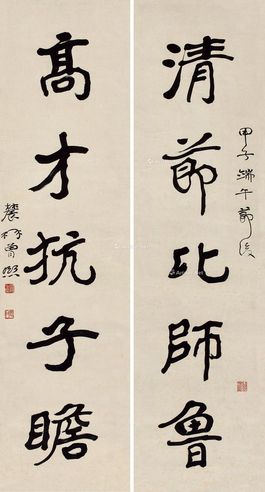 清節比師魯
甲子端午節後
高才抗子瞻
農髯曾熙